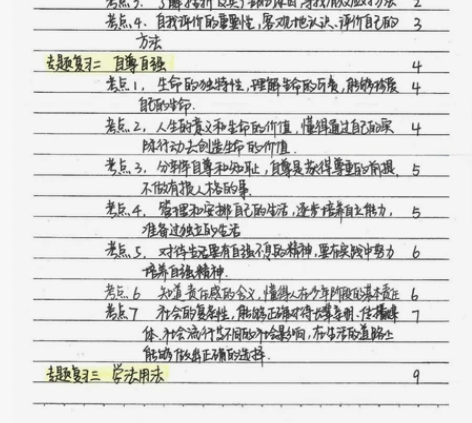 考点3、了解挫折 方法 2
考点4. 自我评价的重要性,客观地认识、评价自己的 3
方法
专题复习二 自尊自强 4
考点1、生命的独特性,理解生命的可贵,能够珍爱 4
自己的生命.
考点2、人生的意义和生命的价值,懂得通过自己的实 4
际行动去创造生命的价值.
考点3、分享得自尊和知耻,自尊是获得尊重的前提, 5
不做有损人格的事.
考点4、管理和安排自己的生活,逐步培养自立能力, 5
准备过独立的生活
考点5、对待生活要有自强不息的精神,要在实践中努力 6
培养自强精神.
考点6 知道责任感的含义,懂得人在少年阶段的基本责任 6
考点7 社会的复杂性,能够正确对待 传播媒 7
体、社会流行等不同的社会影响,在生活的道路上
能够做出正确的选择.
专题复习三 学法用法 9